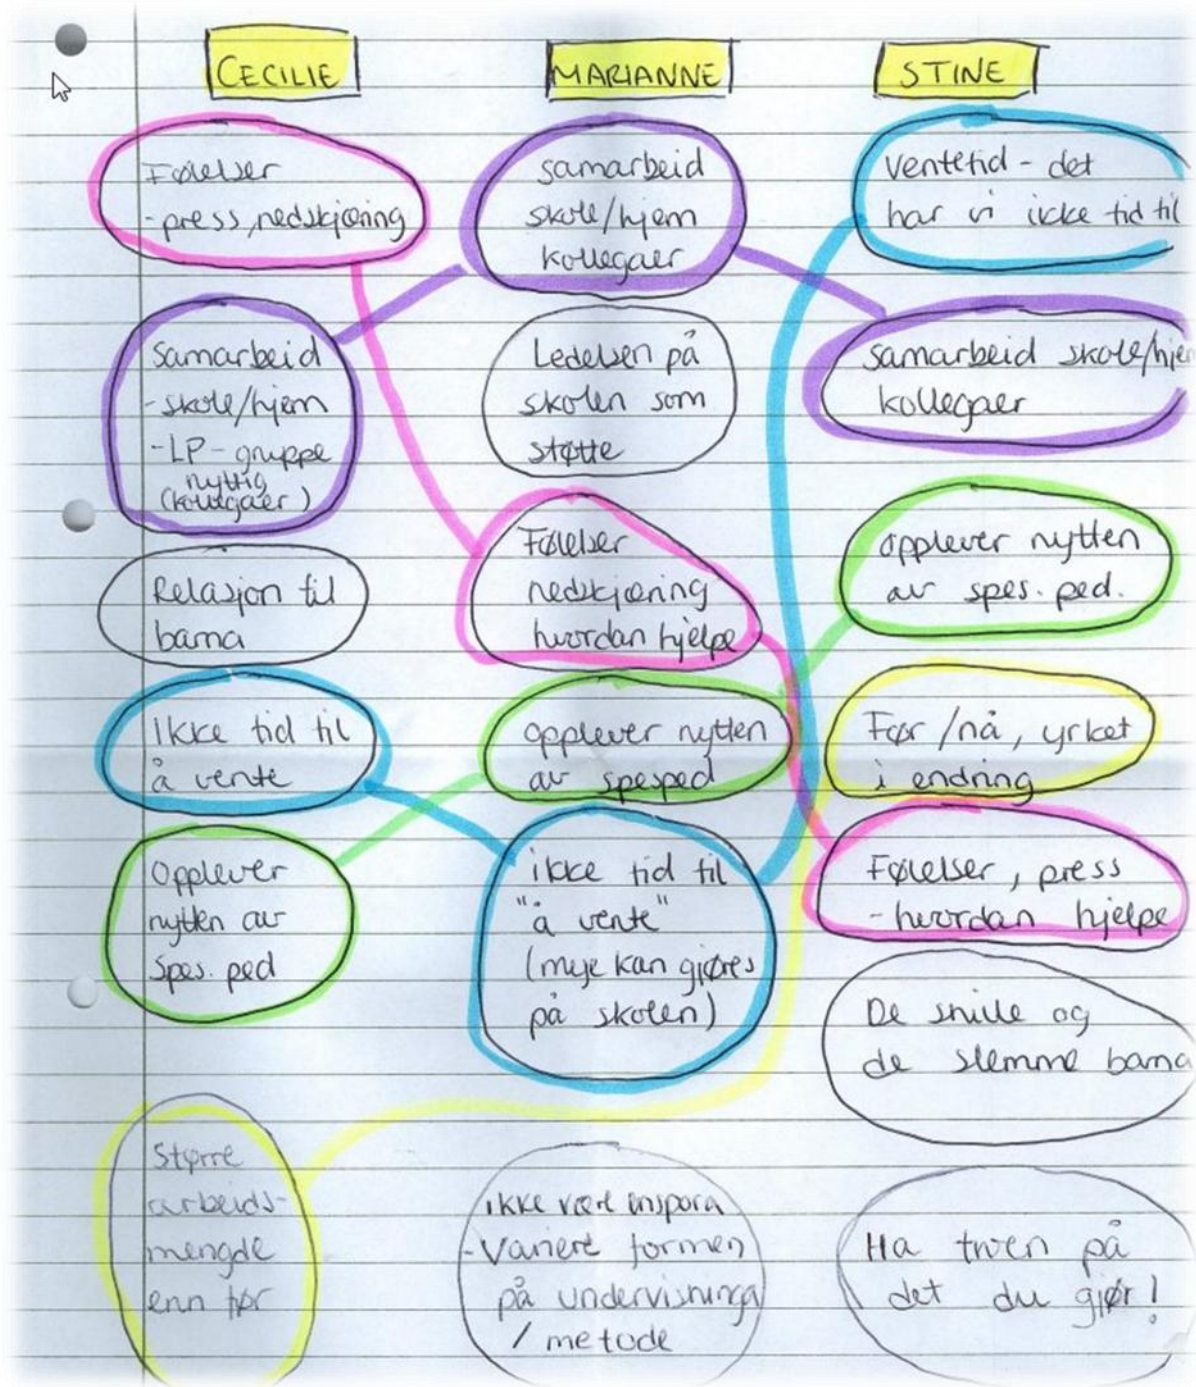 CECILIE
Følelser
-press, nedskjæring
Samarbeid
-skole/hjem
-LP-gruppe
nyttig
(kollegaer)
Relasjon til
barna
Ikke tid til
å vente
Opplever
nytten av
spes. ped
Større
arbeids-
mengde
enn før
MARIANNE
samarbeid
skole/hjem
kollegaer
Ledelsen på
skolen som
støtte
Følelser
nedskjæring
hvordan hjelpe
opplever nytten
av spesped
ikke tid til
"å vente"
(mye kan gjøres
på skolen)
ikke være enspora
-Variere formen
på undervisninga
/ metode
STINE
Ventetid - det
har vi ikke tid til
samarbeid skole/hjem
kollegaer
opplever nytten
av spes. ped.
Før/nå, yrket
i endring
Følelser, press
-hvordan hjelpe
De snille og
de slemme barna
Ha troen på
det du gjør!